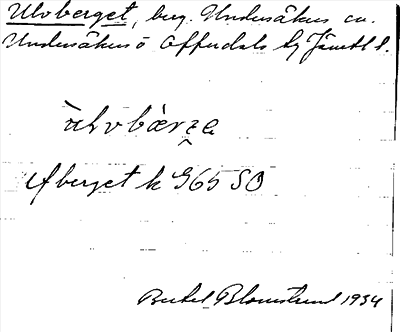 Ulvberget, berg. Undersåkers sn.
Undersåkers o Offerdals tg Jämtl l.
ùlvbàrʒa
Ufberget k G65 SO
Bertel Blomstrand 1934